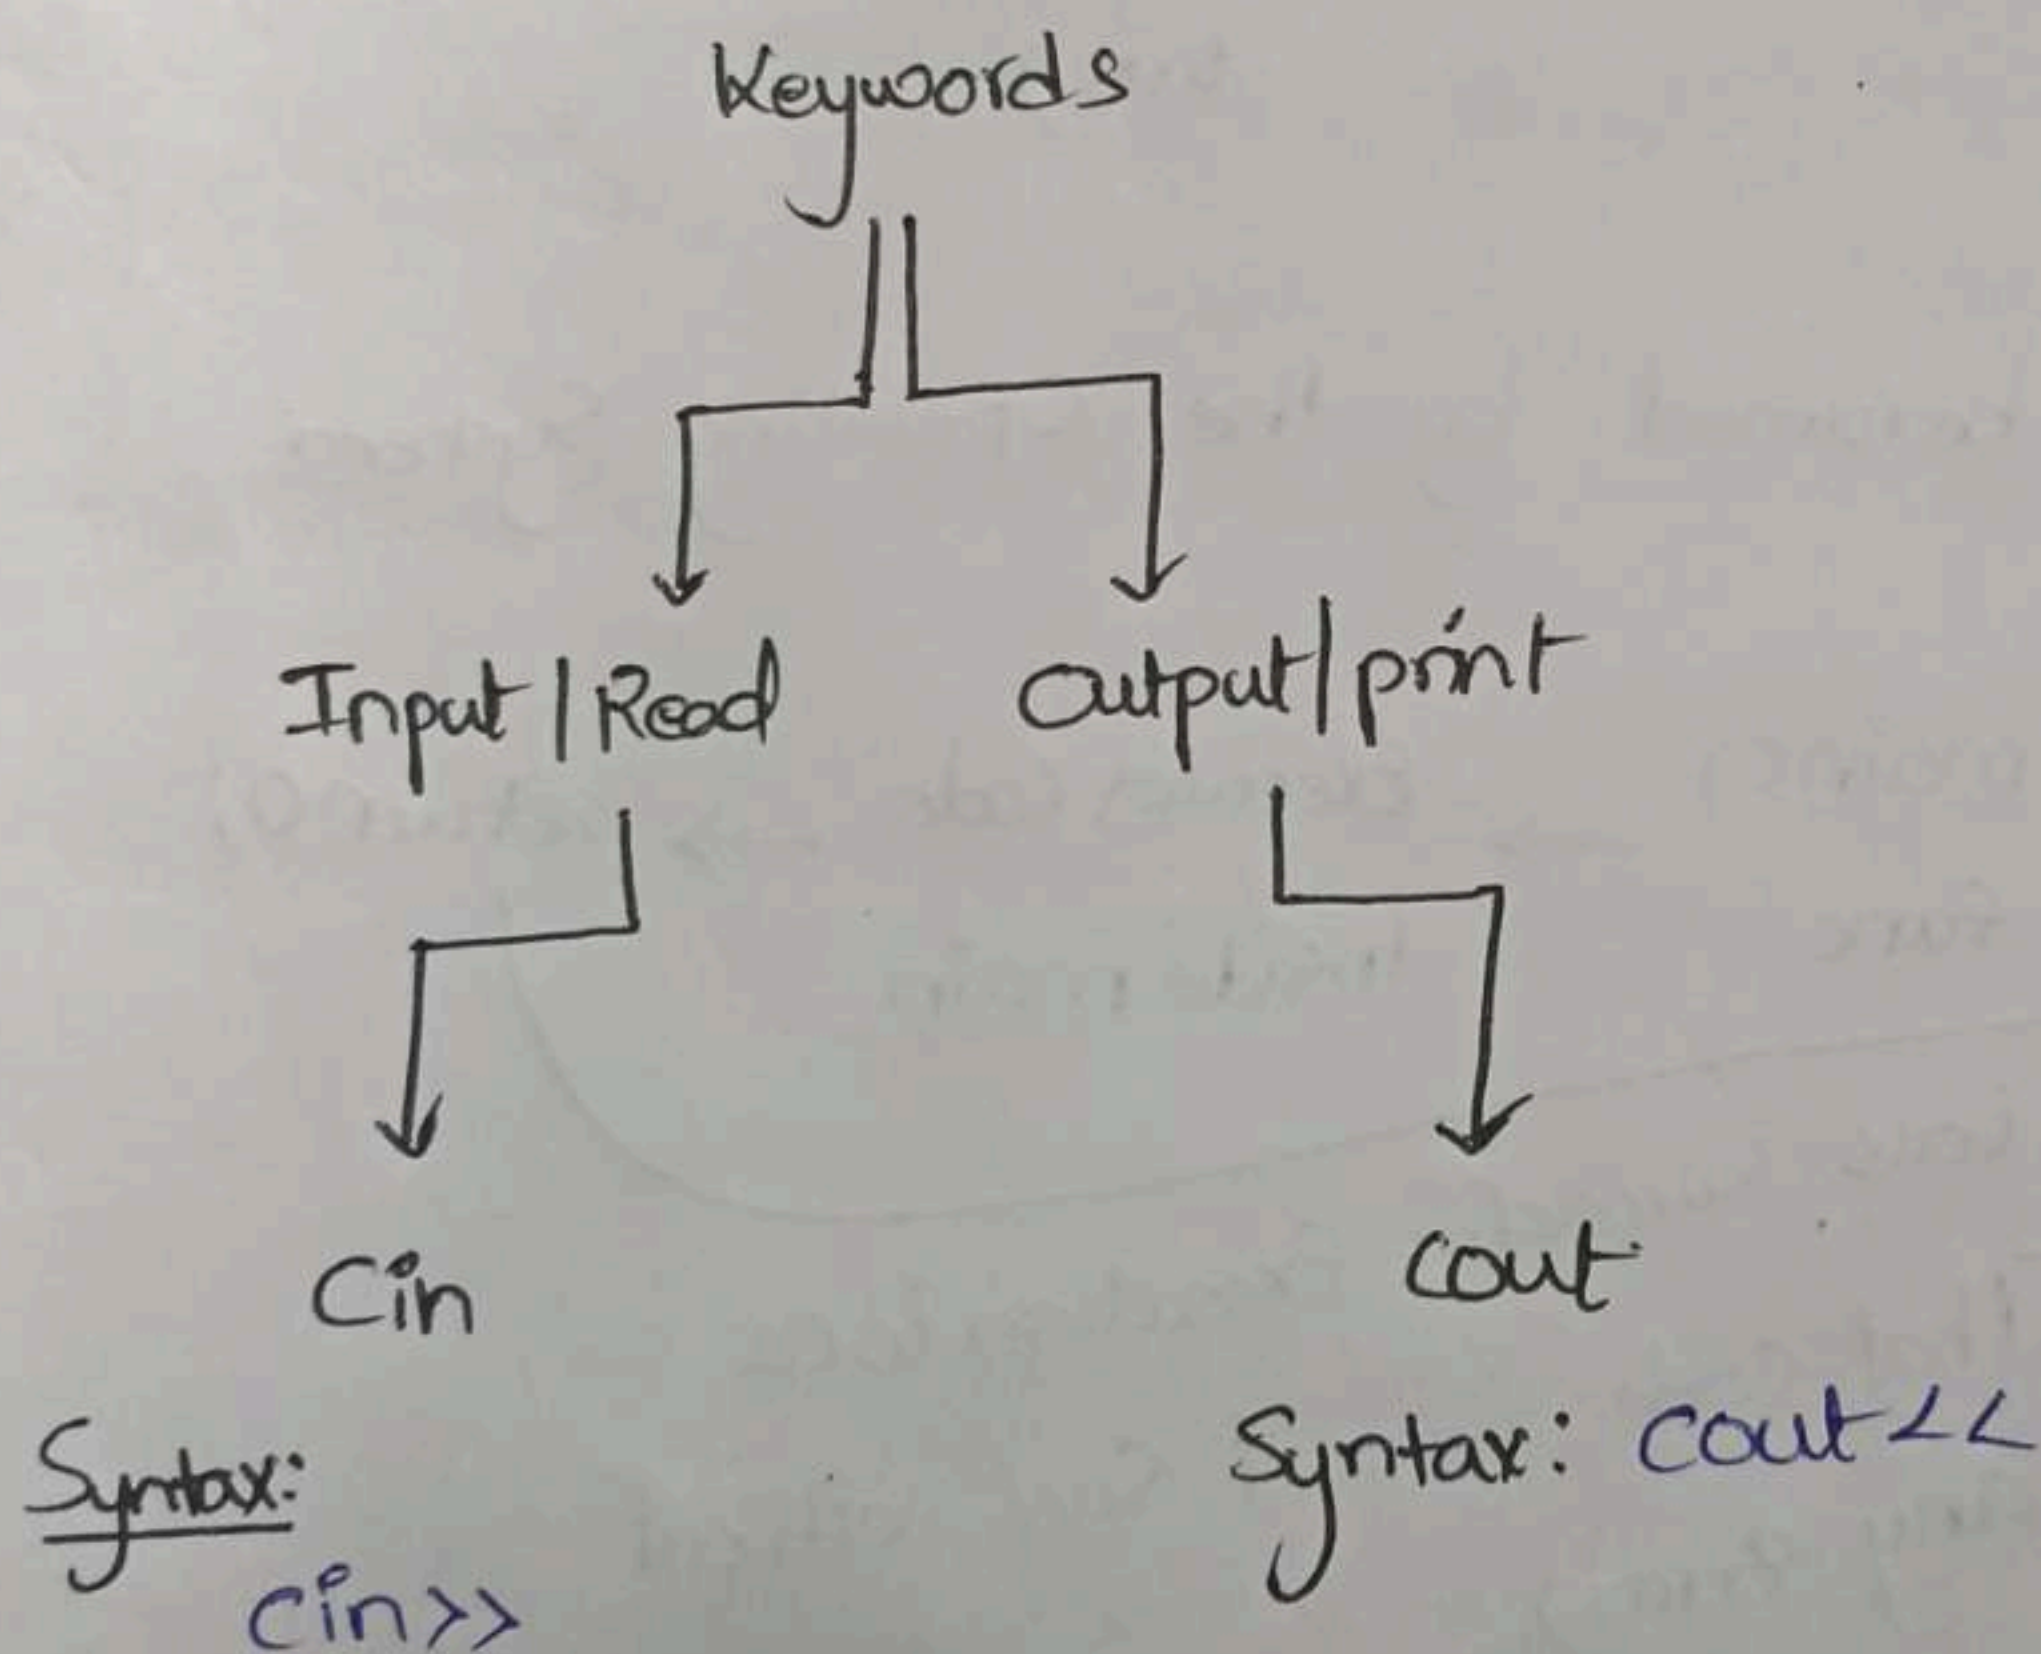 Keywords
Input | Read
Output | print
Cin
Cout
Syntax:
Cin >>
Syntax: Cout <<